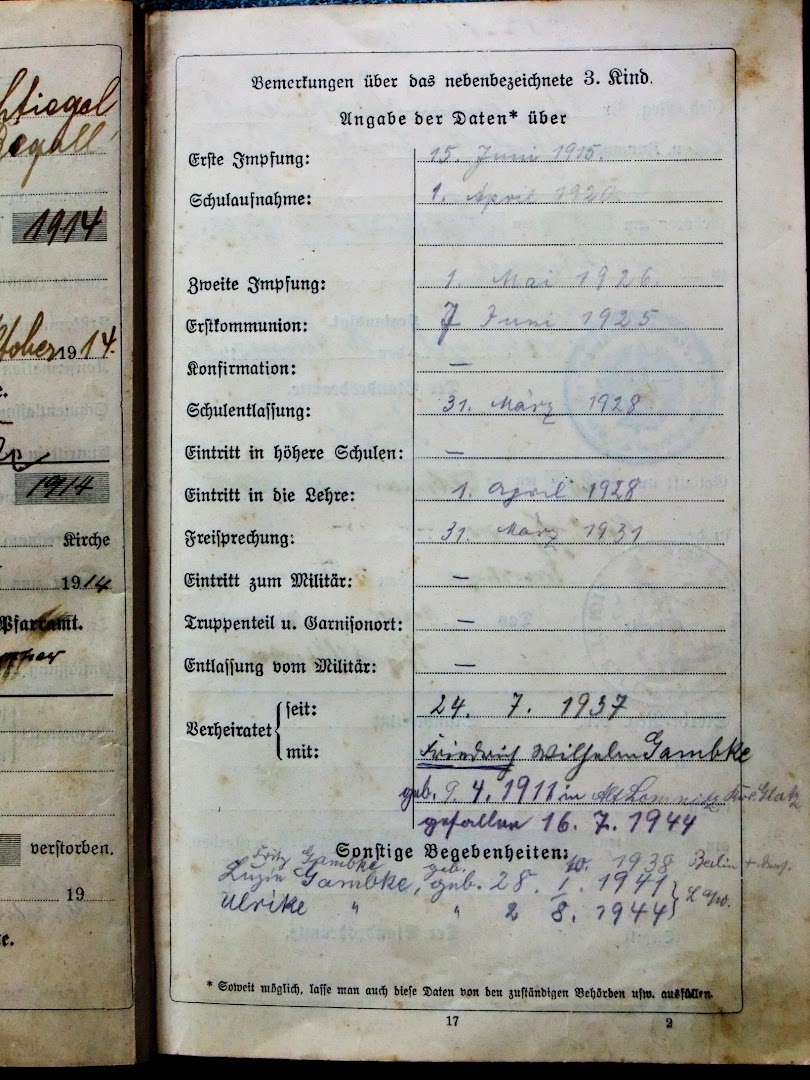 1914
19 14.
1914
Kirche
19 14
Pfarramt.
verstorben.
19
Bemerkungen über das nebenbezeichnete 3. Kind.
Angabe der Daten* über
Erste Impfung: 15. Juni 1915.
Schulaufnahme: 1. April 1920
Zweite Impfung: 1. Mai 1926
Erstkommunion: 7 Juni 1925
Konfirmation: —
Schulentlassung: 31. März 1928
Eintritt in höhere Schulen: —
Eintritt in die Lehre: 1. April 1928
Freisprechung: 31. März 1931
Eintritt zum Militär: —
Truppenteil u. Garnisonort: —
Entlassung vom Militär: —
Verheiratet
seit: 24. 7. 1937
mit: Friedrich Wilhelm Gambke
geb. 9. 4. 1911 in Glatz
gefallen 16. 7. 1944
Sonstige Begebenheiten:
Fritz Gambke geb. 1938 Berlin
Gambke, geb. 28. 1. 1941
Ulrike " " 2 8. 1944
* Soweit möglich, lasse man auch diese Daten von den zuständigen Behörden usw. ausfüllen.
17 2